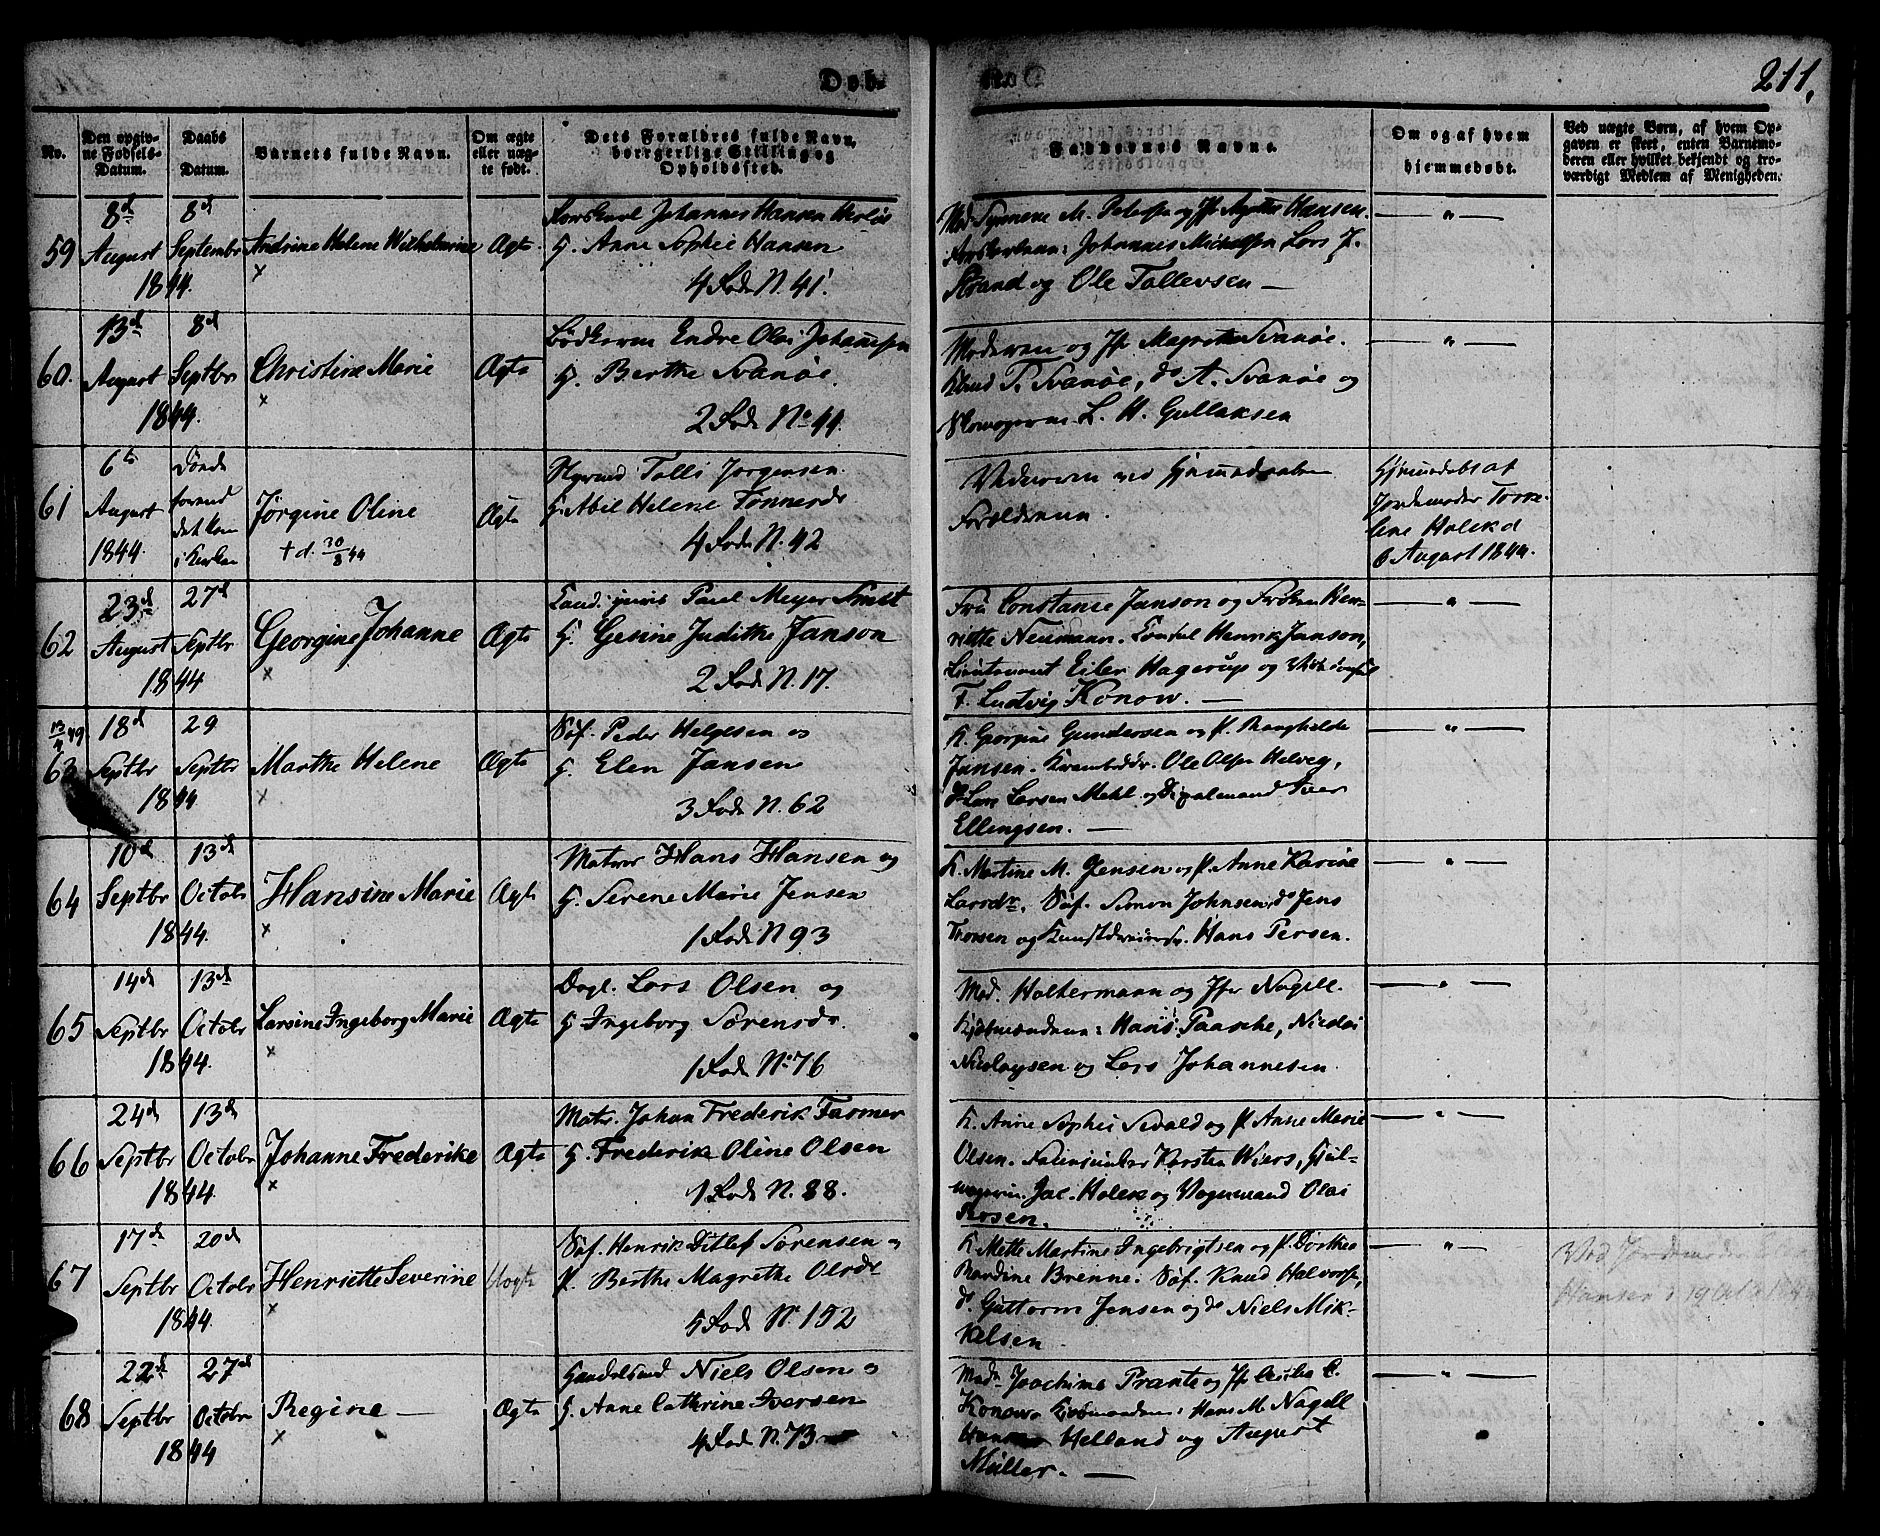 Døb-
211.
No.
Den opgiv-
ne Fødsels-
Datum.
Daabs
Datum.
Barnets fulde Navn.
Om ægte
eller uæg-
te født.
Dets Forældres fulde Navn,
borgerlige Stilling og
Opholdssted.
Faddernes Navne.
Om og af hvem
hjemmedøbt.
Ved uægte Børn, af hvem Op-
gaven er skeet, enten Barnemo-
deren eller hvilket bekjendt og tro-
værdigt Medlem af Menigheden.
59
8d
August
8d
September
1844.
Andrine Helene Wilhelmine
×
Ægte
Johannes Hansen
H. Anne Sophie Hansen
4 Fode N. 41.
Mad. M. og Jfr Hansen.
Johannes Lars J.
Strand og Ole Tollevsen —
— " —
60.
13d
August
8d
Septbr
1844.
Christine Marie
×
Ægte
Endre Olai Johannesen
H. Berthe Svanøe.
2 Fode No 44.
Moderen og Jfr Magrethe Svanøe.
P. Svanøe, do A. Svanøe og
L. H. Gullaksen
— " —
61
6te
August
1844.
Døde
forend
det kom
i Kirken
Jørgine Oline
† d. 30/8 44
Ægte
Tolli Jørgensen.
H. Abel Helene Tønnesdr
4 Fode N. 42
ved Hjemmedaaben
Forældrene.
Hjemdøbt af
Jordemoder Torre-
line Holck d
6 August 1844.
62
23d
August
27d
Septbr
1844
Georgine Johanne
×
Ægte
Cand. juris Paul Meyer Smit
H. Gesine Judithe Janson
2 Fode N. 17.
Fru Constance Janson og Frøken Hen-
riette Neumann. Consul Henrik Janson,
Lieutenant Eiler Hagerup og
F. Ludvig Konow. —
— " —
63
18d
Septbr
29
Septbr
1844
Marthe Helene
×
Ægte
Søf. Peder Helgesen og
H. Elen Jansen
3 Fode N. 62
K. Gundersen og P. Ranghilde
Jansen. Ole Olsen Helveg,
Lars Larsen Mehl og Iver
Ellingsen. —
— " —
64
10d
Septbr
13d
Octobr
1844.
Hansine Marie
×
Ægte
Matros Hans Hansen og
H. Serene Marie Jensen
1 Fode N 93
K. Martine M. Jensen og P. Anne Karine
Larsdr. Søf. Simon Johnsen, do Jens
Thorsen og Hans Persen.
— " —
65
14d
Septbr
13d
Octobr
1844.
Larsine Ingeborg Marie
×
Ægte
Dagl. Lars Olsen og
H. Ingeborg Sørensdr.
1 Fode No 76
Mad. Holtermann og Jfr Nagell.
Kjøbmændene: Hans Paasche, Nicolai
Nicolaysen og Lars Johannesen
— " —
66
24d
Septbr
13d
Octobr
1844.
Johanne Frederike
×
Ægte
Matr. Johan Frederik Farmer
H. Frederike Oline Olsen
1 Fode N. 88.
K. Anne Sophie Sevald og P. Anne Marie
Olsen. Karsten Wiers,
Jac. Holck og Vognmand Olai
Persen.
— " —
67
17d
Septbr
20d
Octobr
1844.
Henriette Severine
×
Uægte
Søf. Henrik Ditlef Sørensen og
P. Berthe Magrethe Olsdr
5 Fode No 152
K. Mette Martine Ingebrigtsen og P. Dorthea
Bardine Brenne. Søf. Knud Halvorsen,
do Guttorm Jensen og do Niels Mik-
kelsen
— " —
Ved Jordemoder
Hansen
68
22d
Septbr
27d
Octobr
1844
Regine —
×
Ægte
Niels Olsen og
H. Anne Cathrine Iversen
4 Fode N. 73
Mad. Joachime Prante og Jfr Cecilia C.
Konow. Kjøbmændene: Hans M. Nagell
Helland og August
Müller. —
— " —